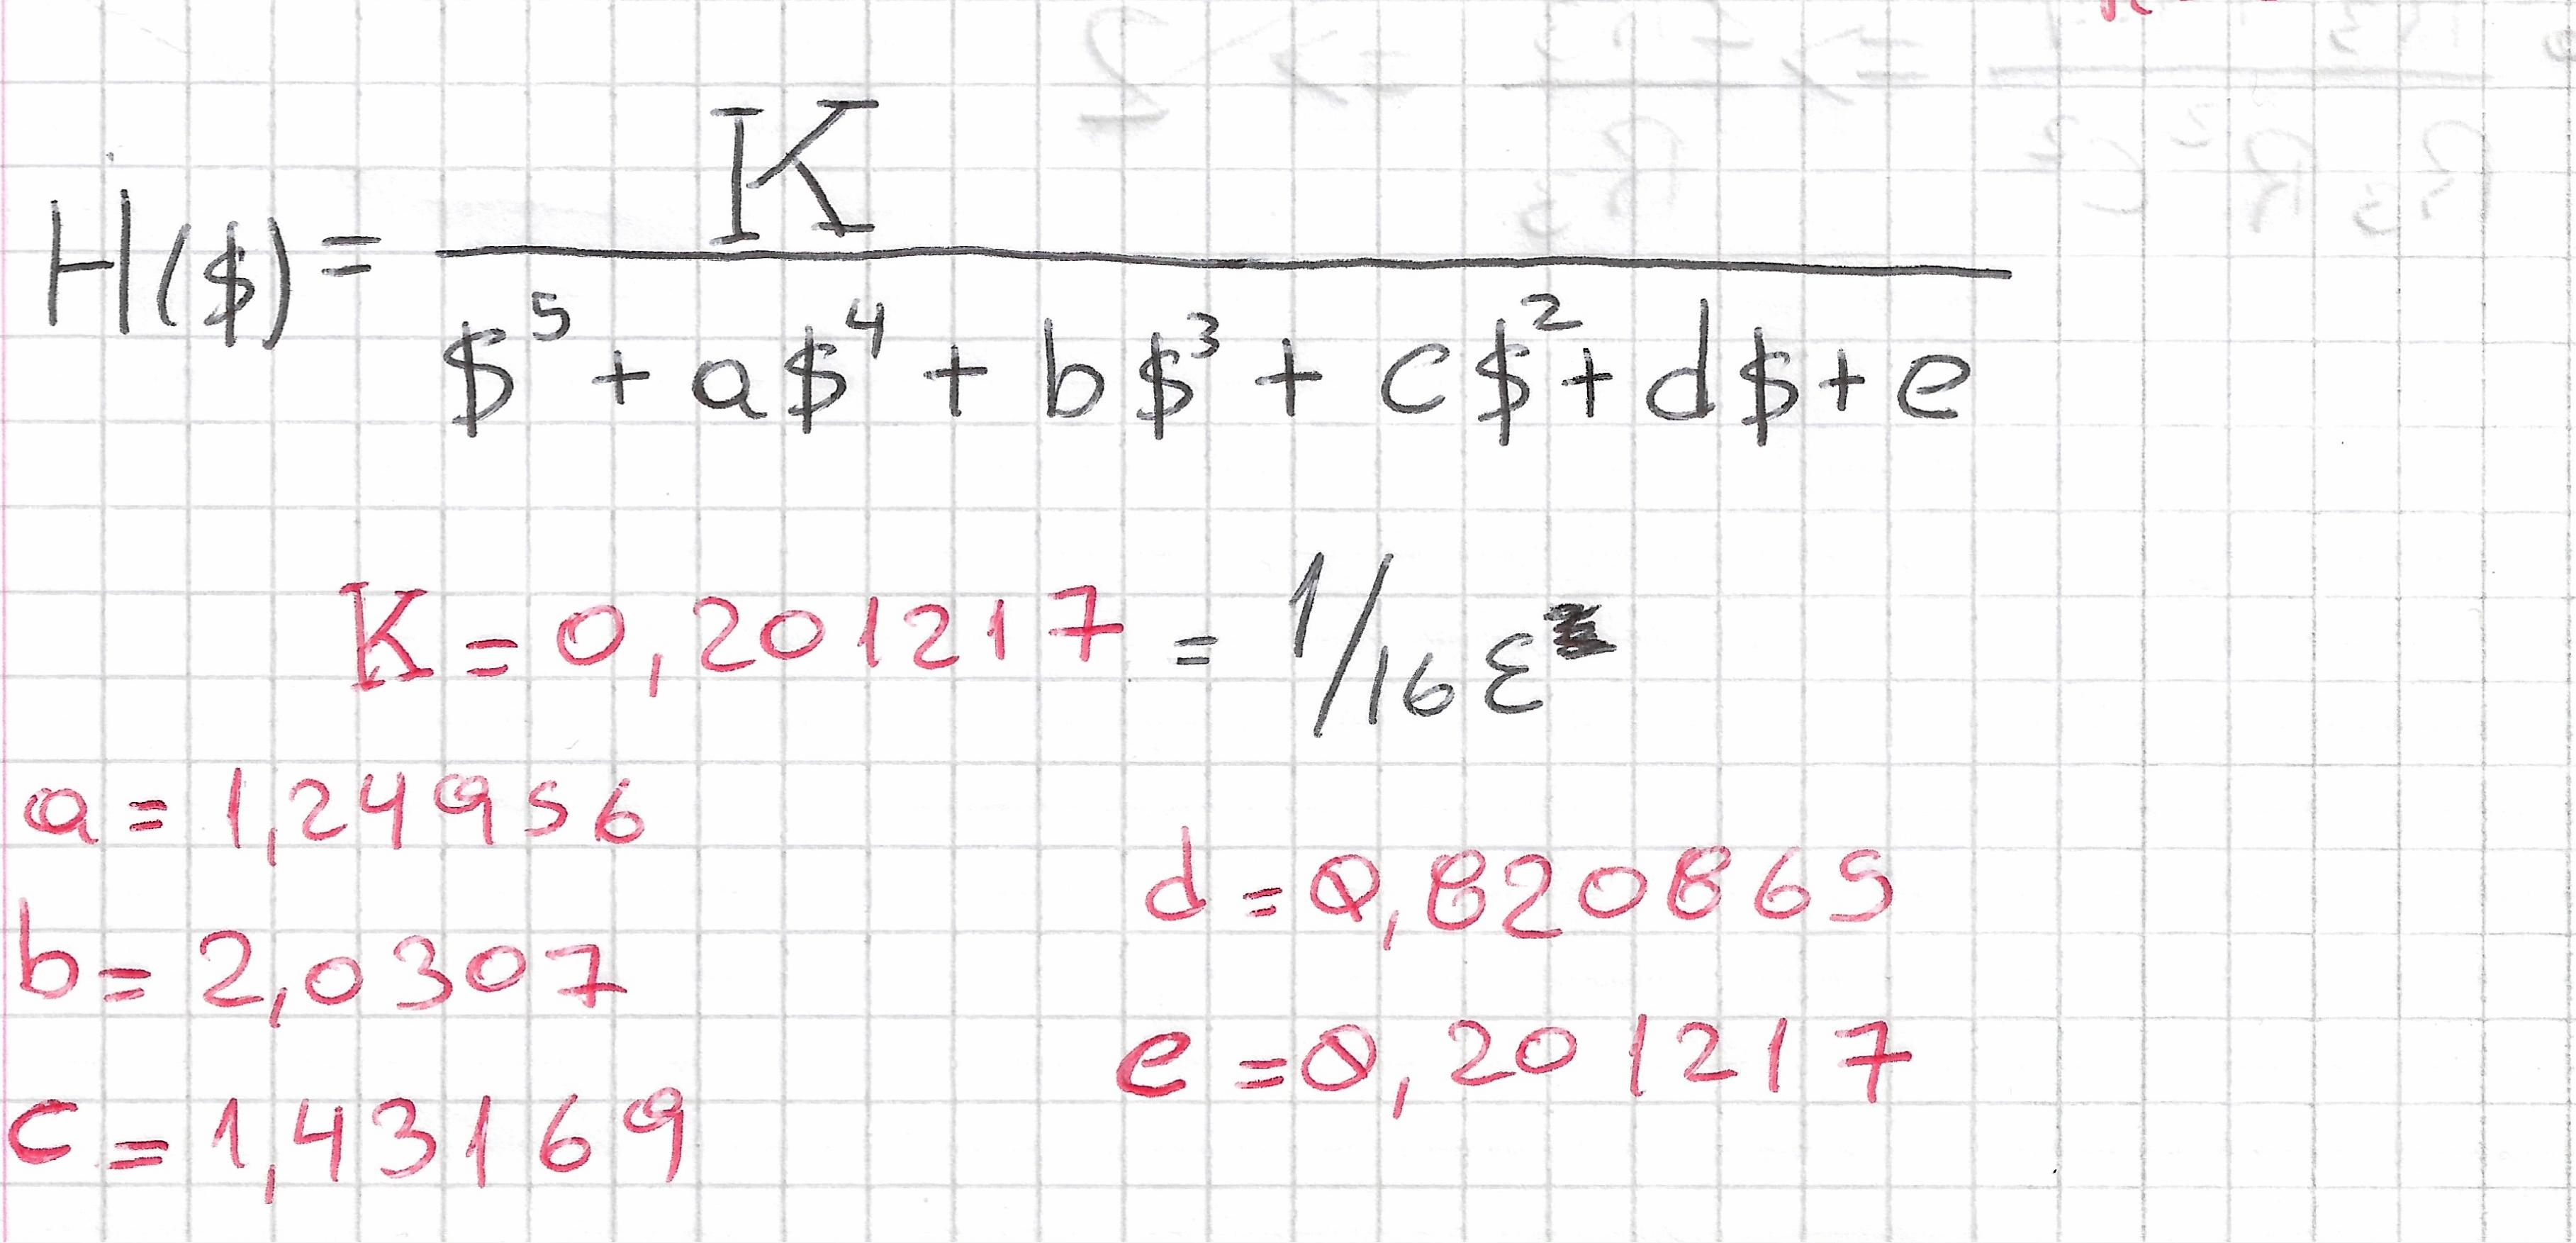 K
H($) = 
$⁵ + a$⁴ + b$³ + c$² + d$ + e
K = 0,201217 = 1/16 ε
a = 1,24956
b = 2,0307
c = 1,43169
d = 0,820865
e = 0,201217